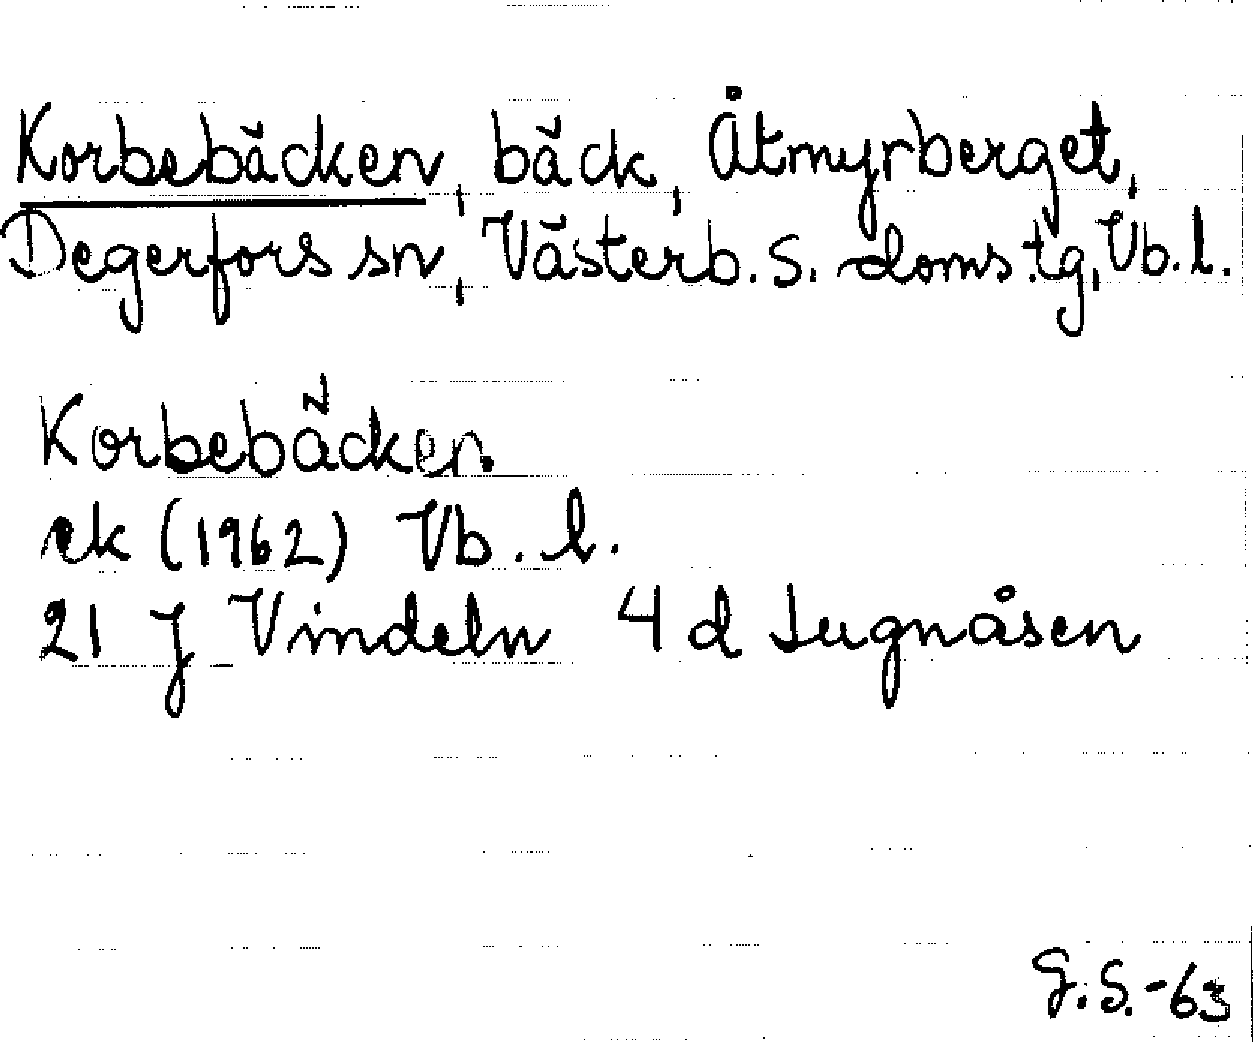 Korbebäcken, bäck, Åtmyrberget,
Degerfors sn, Västerb. s. doms.tg, Vb. l.
Korbebäcken
ek (1962) Vb. l.
21 J Vindeln 4 d Lugnåsen
G.S.-63